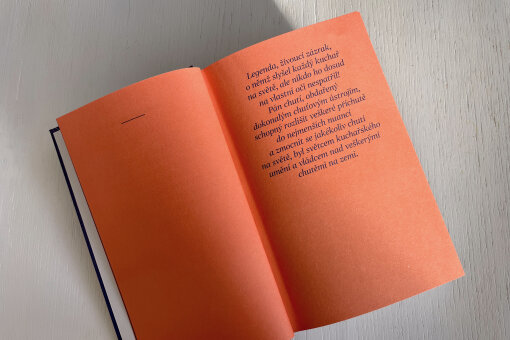 Legenda, živoucí zázrak,
o němž slyšel každý kuchař
na světě, ale nikdo ho dosud
na vlastní oči nespatřil!
Pán chutí, obdařený
dokonalým chuťovým ústrojím,
schopný rozlišit veškeré příchutě
do nejmenších nuancí
a zmocnit se jakékoliv chuti
na světě, byl světcem kuchařského
umění a vládcem nad veškerými
chutěmi na zemi.